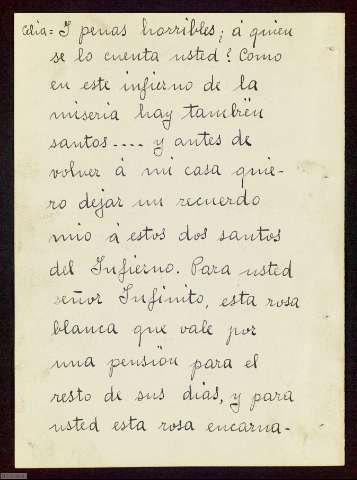 Celia = Y penas horribles; á quien
se lo cuenta usted? Como
en este infierno de la
miseria hay tambiën
santos.... y antes de
volver á mi casa quie-
ro dejar un recuerdo
mio á estos dos santos
del Infierno. Para usted
señor Infinito, esta rosa
blanca que vale por
una pensiön para el
resto de sus dias, y para
usted esta rosa encarna-